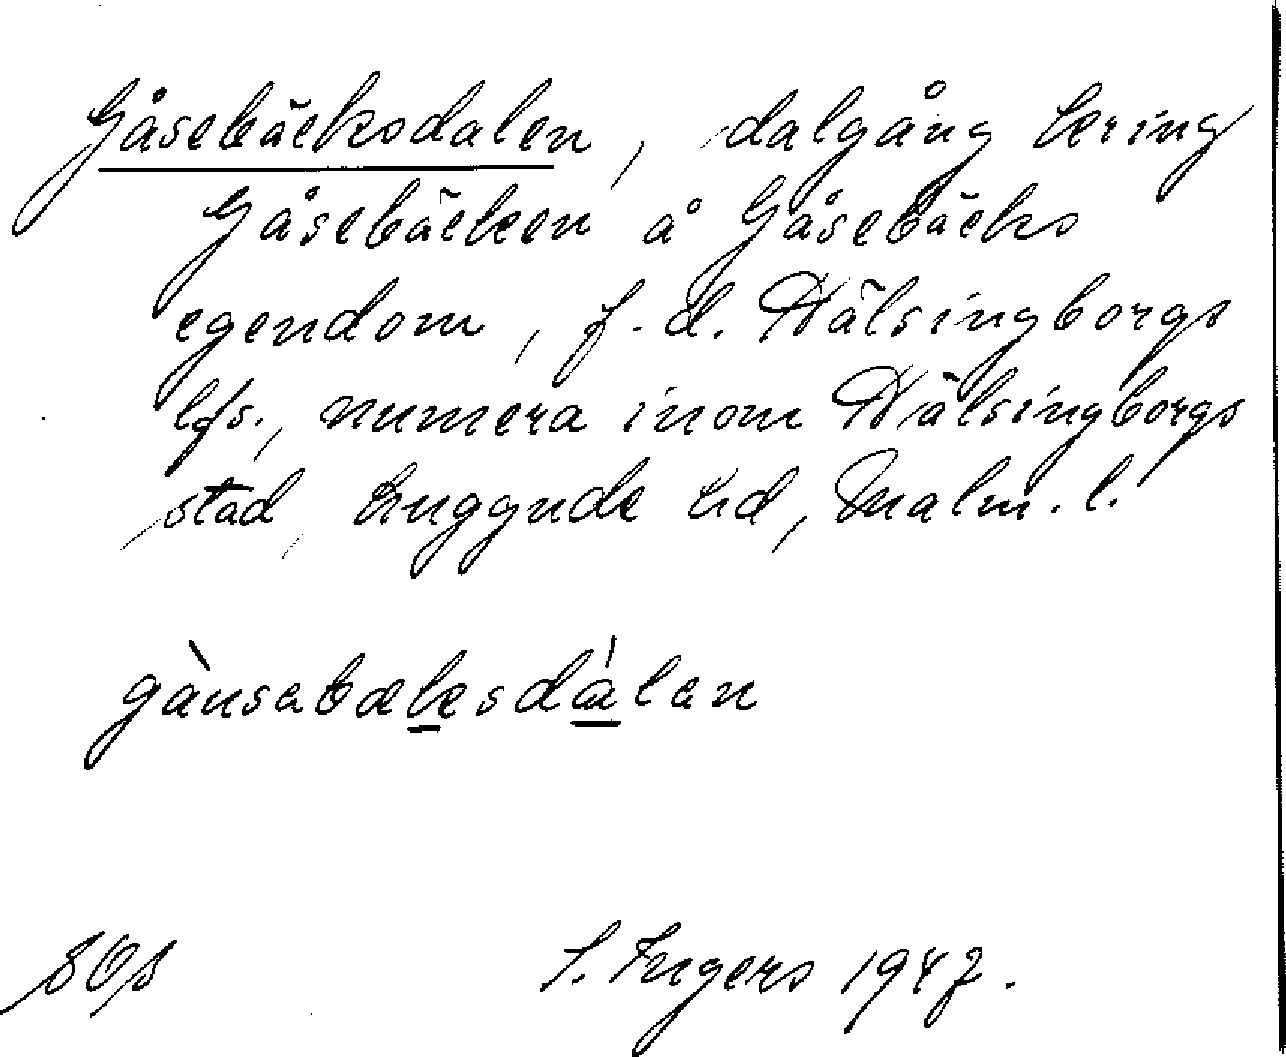 Gåsebäcksdalen, dalgång kring
Gåsebäcken å Gåsebäcks
egendom, f.d. Hälsingborgs
lfs., numera inom Hälsingborgs
stad, Luggude hd, Malm. l.
gàusabæksdálan
S. Ingers 1947.